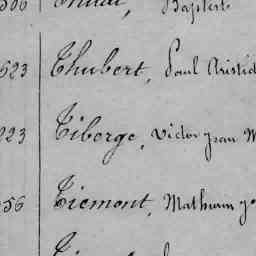 Baptist
623 Thubert, Paul Aristid
223 Tiberge, Victor Jean M
056 Tiemont, Mathurin J